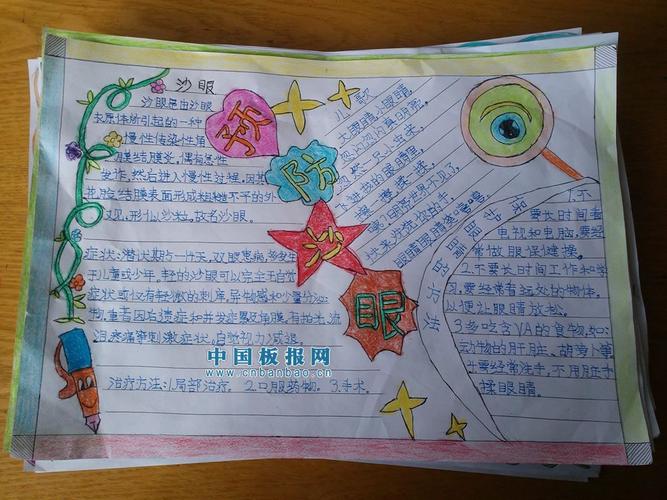 沙眼
沙眼是由沙眼
衣原体所引起的一种
慢性传染性角
膜结膜炎,偶有急性
发作,然后进入慢性过程,因其
在脸结膜表面形成粗糙不平的外
观,形似沙粒,故名沙眼。
症状:潜伏期5—14天,双眼患病,多发生
于儿童或少年。轻的沙眼可以完全无自觉
症状或仅有轻微的刺痒,异物感和少量分泌
物,重者因后遗症和并发症累及角膜,有怕光、流
泪、疼痛等刺激症状,自觉视力减退。
治疗方法:1.局部治疗、2.口服药物、3.手术。
预
防
沙
眼
儿歌
大眼睛,小眼睛
忽闪忽闪真明亮。
一只小虫
飞进我的眼睛里
揉揉揉
眼睛
保护眼睛的好方法
1.不
要长时间看
电视和电脑,要经
常做眼保健操。
2.不要长时间工作和学
习,要经常看远处的物体,
以便让眼睛放松。
3.多吃含VA的食物,如:
动物的肝脏、胡萝卜等
4.要经常洗手,不用脏手
揉眼睛。
中国板报网
www.cnbanbao.cn